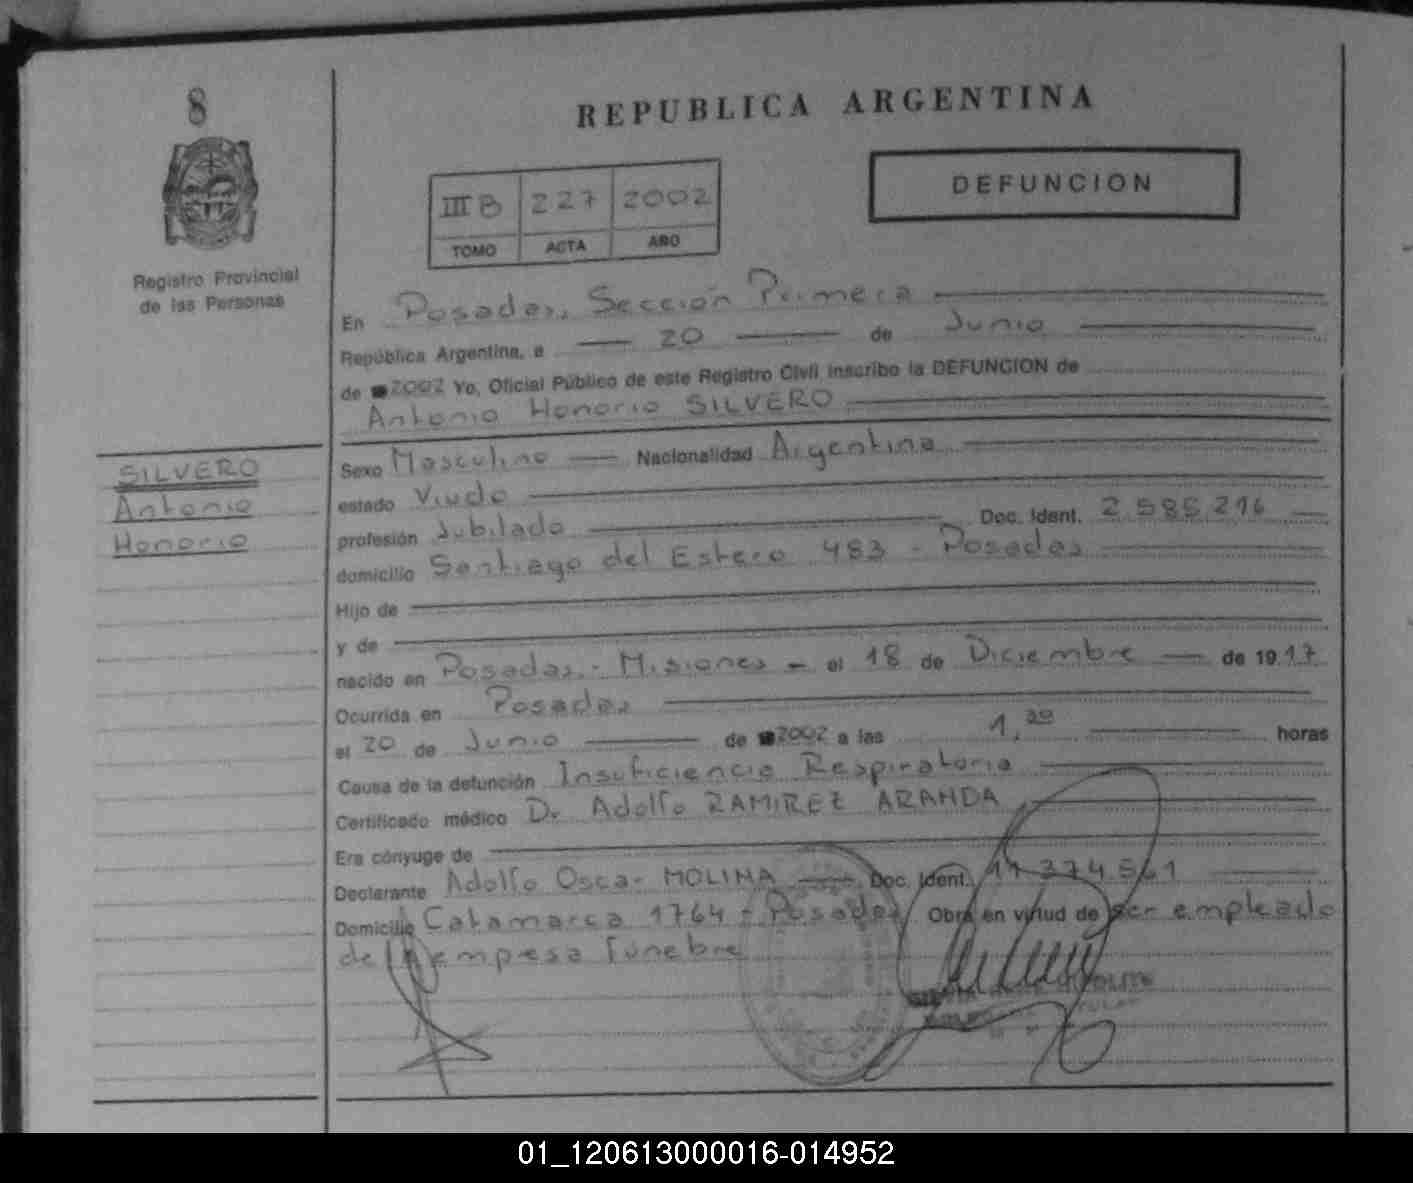 8
REPUBLICA ARGENTINA
DEFUNCION
III B 227 2002
TOMO ACTA AÑO
Registro Provincial
de las Personas
En Posadas, Sección Primera
República Argentina, a 20 de Junio
de 2002 Yo, Oficial Público de este Registro Civil inscribo la DEFUNCION de
Antonio Honorio SILVERO
SILVERO
Antonio
Honorio
Sexo Masculino Nacionalidad Argentina
estado Viudo
profesión Jubilado Doc. Ident. 2.585.216
domicilio Santiago del Estero 483 - Posadas
Hijo de
y de
nacido en Posadas - Misiones - el 18 de Diciembre de 1917
Ocurrida en Posadas
el 20 de Junio de 2002 a las 1,30 horas
Causa de la defunción Insuficiencia Respiratoria
Certificado médico Dr Adolfo RAMIREZ ARANDA
Era cónyuge de
Declarante Adolfo Oscar MOLINA Doc. Ident. 11.374.561
Domicilio Catamarca 1764 - Posadas Obra en virtud de ser empleado
de la empresa fúnebre
01_120613000016-014952